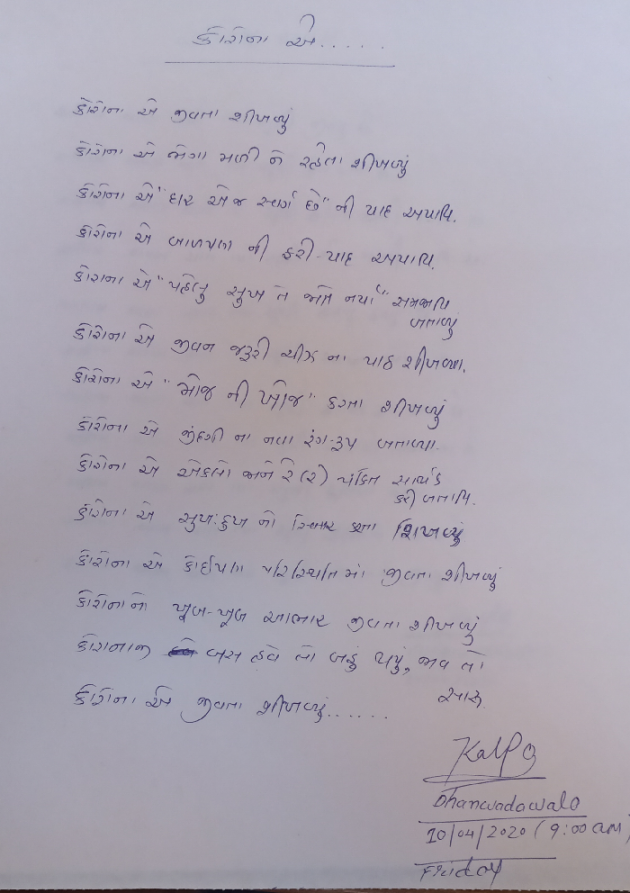 કોરોના એ......
કોરોના એ જીવતા શીખવ્યું
કોરોના એ ભેગા મળી ને રહેતા શીખવ્યું
કોરોના એ "ઘર એજ સ્વર્ગ છે" ની યાદ અપાવિ.
કોરોના એ બાળપણ ની ફરી યાદ અપાવિ.
કોરોના એ "પહેલું સુખ તે જાતે નર્યા" સમજાવિ
બતાવ્યું
કોરોના એ જીવન જરૂરી ચીજ ના પાઠ શીખવ્યા.
કોરોના એ "મોજ ની ખોજ" કરતા શીખવ્યું
કોરોના એ જીંદગી ના નવા રંગ-રૂપ બતાવ્યા.
કોરોના એ એકલો જાને રે (ર) પંક્તિ સાર્થક
કરી બતાવિ.
કોરોના એ સુખ:દુખ નો સ્વિકાર કરતા શિખવ્યું
કોરોના એ કોઈપણ પરિસ્થિતિ માં જીવતા શીખવ્યું
કોરોના નો ખૂબ-ખૂબ આભાર જીવતા શીખવ્યું
કોરોનાજી બસ હવે તો બહું થયું, જાવ તો
સારૂ
કોરોના એ જીવતા શીખવ્યું......
Kalpa
Dhanwadawala
10/04/2020 (9:00 am)
Friday